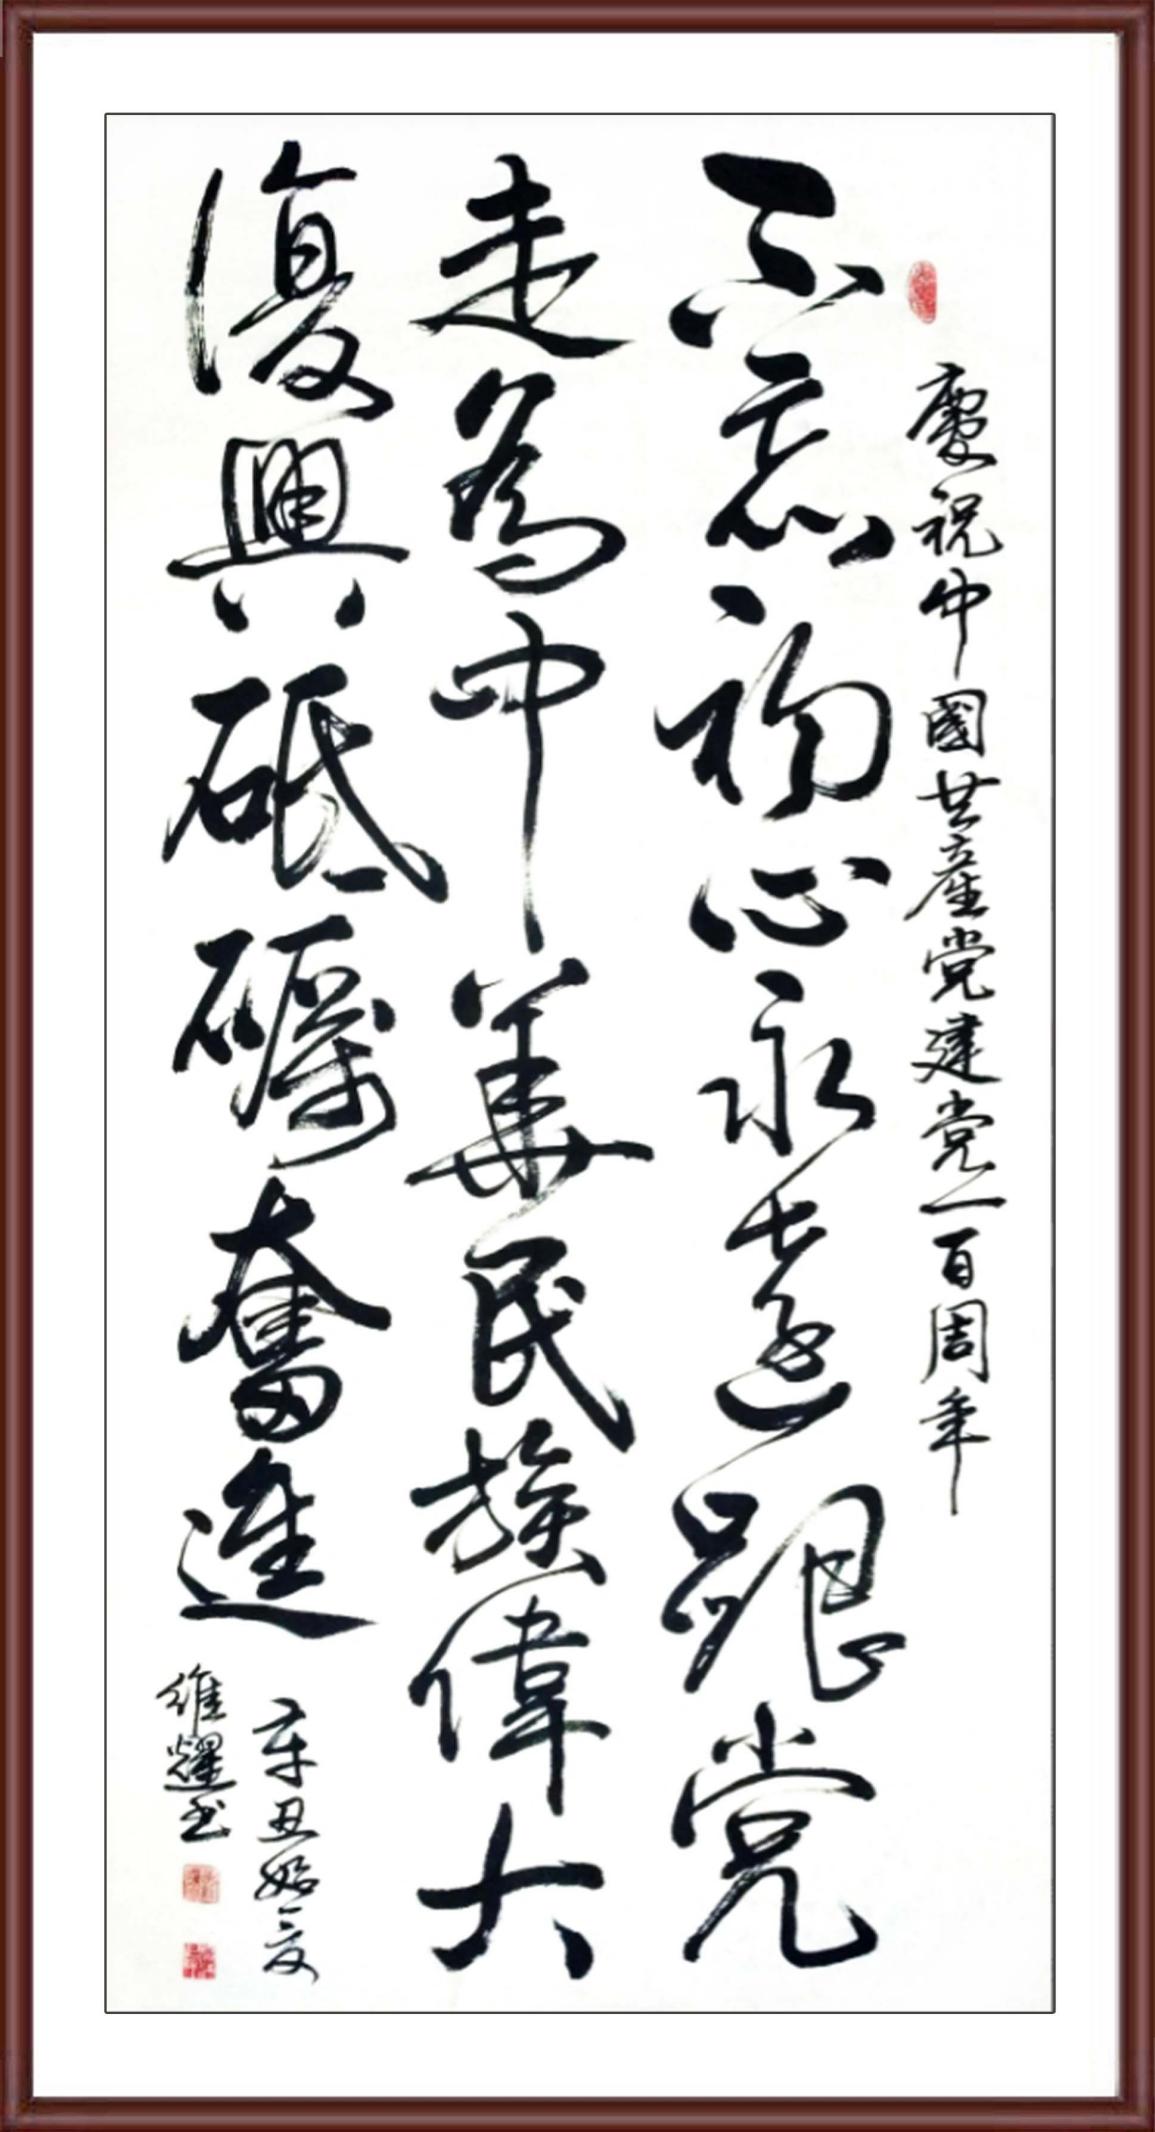 慶祝中國共產党建党一百周年
不忘初心永遠跟党
走為中華民族偉大
復興砥礪奮進
辛丑始夏
維耀书